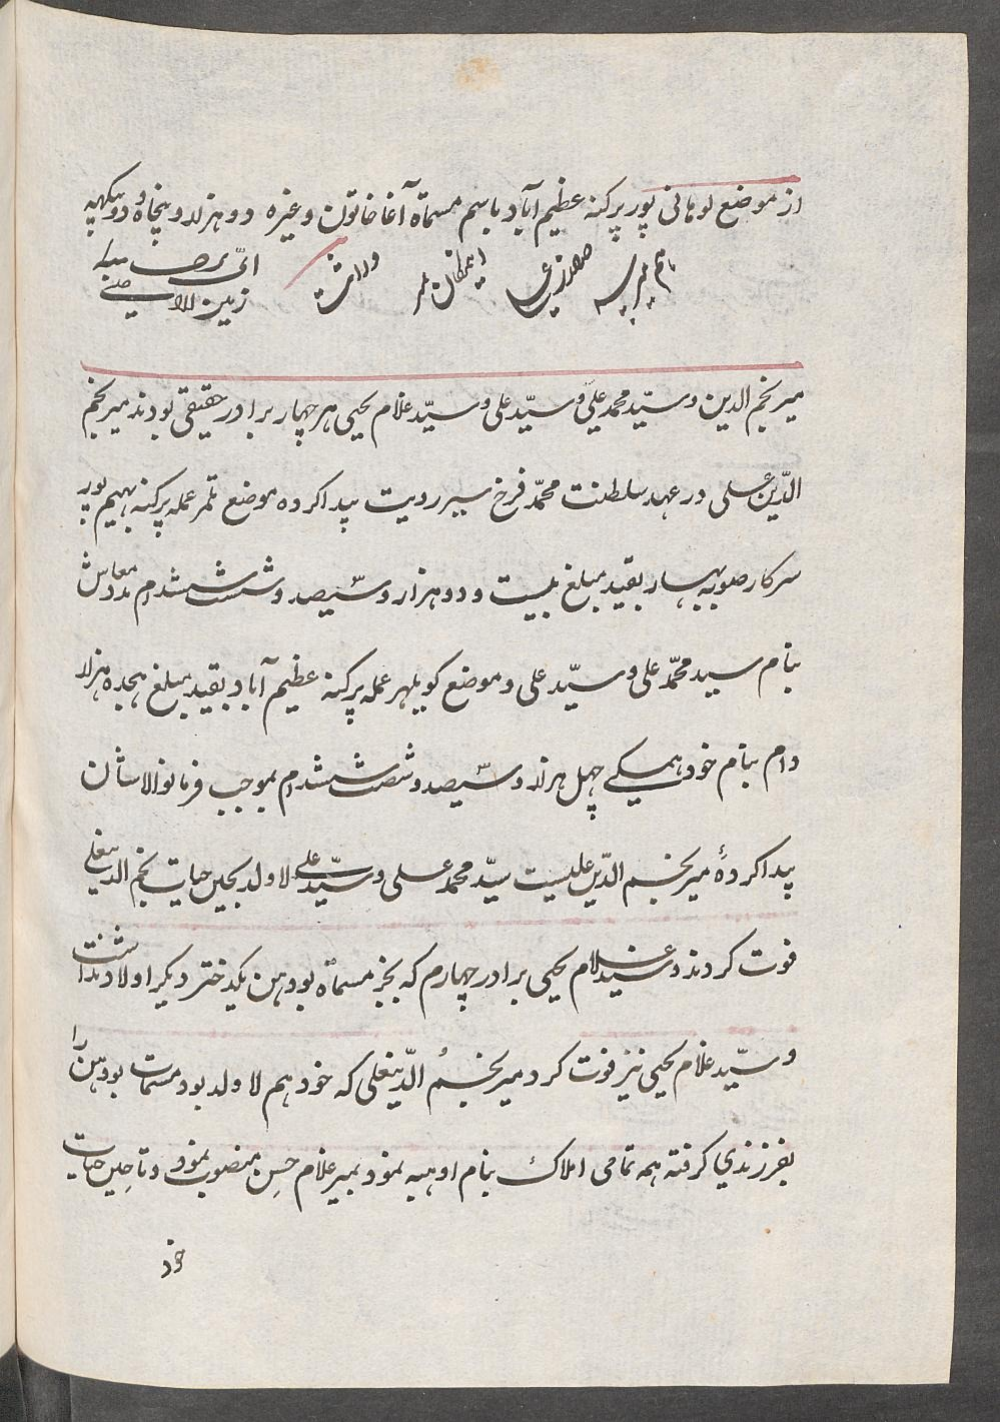 از موضع لوهانی پور پرکنه عظیم آباد باسم مسماة آغا خاتون وغیره دو هزار و پنجاه و دو بیکهه
میر نجم الدین و سیّد محمد علی و سیّد علی و سیّد غلام یحیی هر چهار برادر حقیقی بودند میر نجم
الدّین علی در عهد سلطنت محمّد فرخ سیر رویت پیدا کرده موضع تلمر عمله پرکنه بهیم پور
سرکار صوبه بهار بقید مبلغ بیست و دو هزار و سیصد و شصت شش دام مدد معاش
بنام سید محمّد علی و سیّد علی و موضع کویلهر عمله پرکنه عظیم آباد بقید مبلغ هجده هزار
دام بنام خود همیکے چهل هزار و سیصد و شصت شش دام بموجب فرمانوالاشان
پیدا کردهٔ میر نجم الدّین علیست سیّد محمد علی و سیّد علی لا ولد بحین حیات نجم الدینعلی
فوت کردند و سید غلام یحیی برادر چهارم که بجز مسماة بودهن یکدختر دیکر اولاد نداشت
و سیّد غلام یحیی نیز فوت کرد میر نجم الدّینعلی که خود هم لا ولد بود مسمات بودهن را
بفرزندي کرفته همه تمامی املاک بنام او هبه نمود بمیر غلام حسن منصوب نمود و تا حین حیات
خود